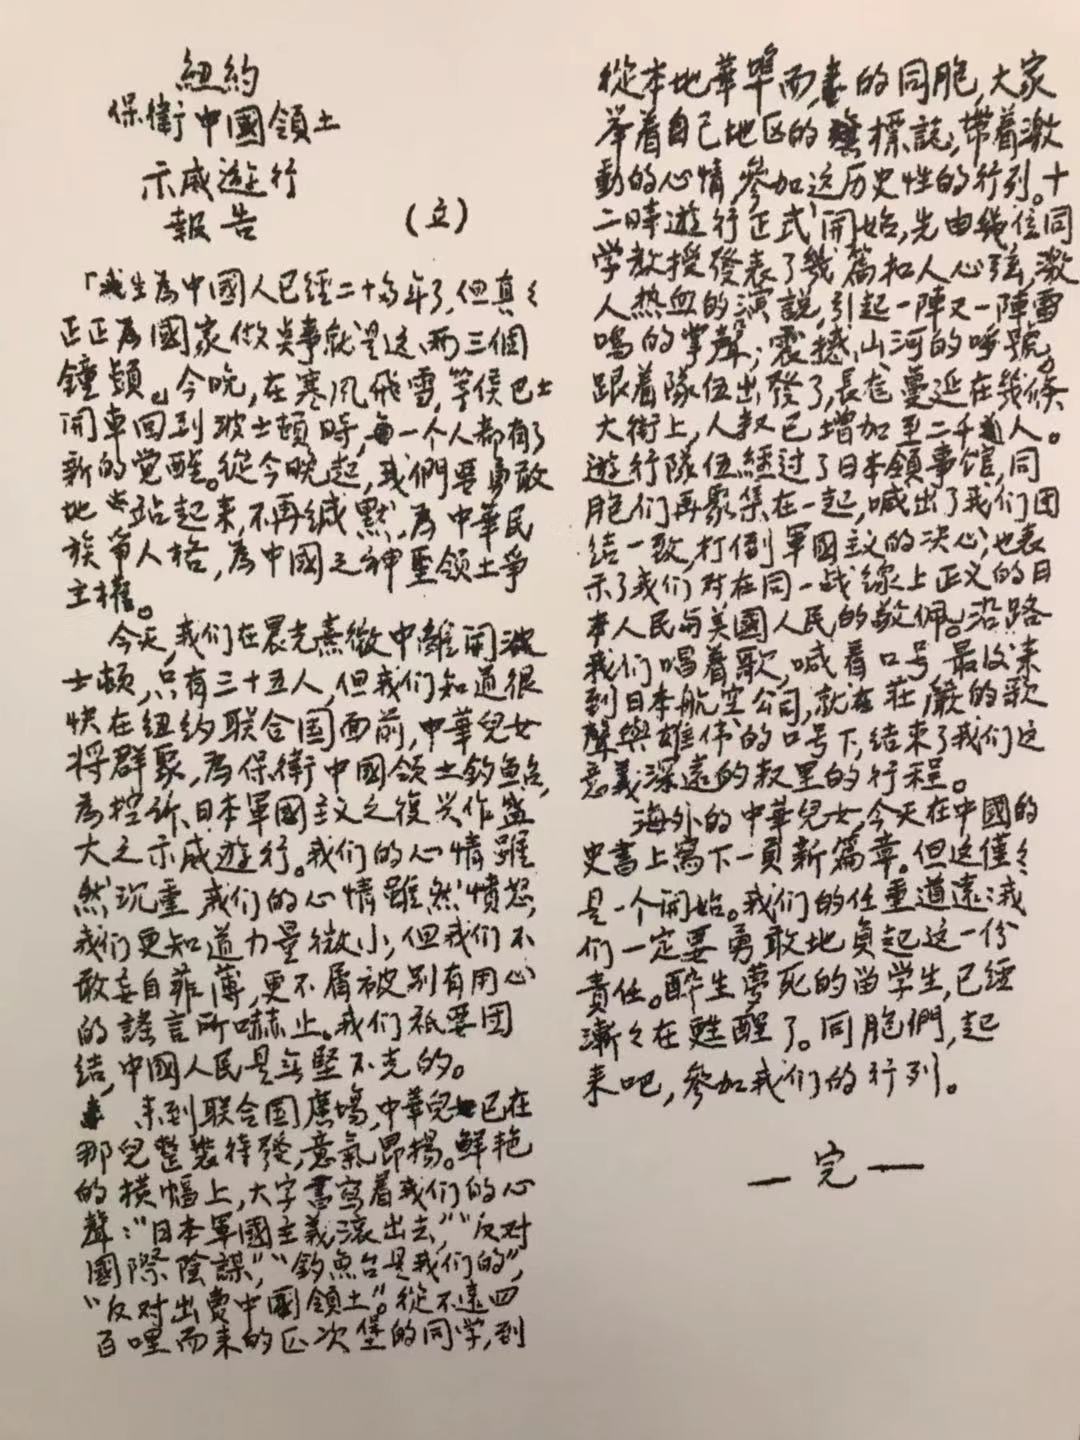 紐約
保衛中國領土
示威遊行
報告 (立)
「我生為中國人已經二十多年了,但真々
正正為國家做點事就是这兩三個
鐘頭。」今晚,在寒风飛雪,等侯巴士
開車回到波士頓時,每一个人都有了
新的覚醒。從今晚起,我們要勇敢
地站起来,不再缄默,為中華民
族爭人格,為中國之神聖領土爭
主權。
今天,我们在晨光熹微中離開波
士頓,只有三十五人,但我们知道很
快在纽约联合国面前,中華兒女
将群聚,為保衛中國領土釣魚台,
為控訴日本軍國主义之復兴作盛
大之示威遊行。我们的心情雖
然沉重,我们的心情雖然憤怒,
我们更知道力量微小,但我们不
敢妄自菲薄,更不屑被别有用心
的謠言所嚇止。我们祇要团
结,中國人民是無堅不克的。
来到联合国廣場,中華兒女已在
那兒整裝待發,意氣昂揚。鲜艳
的横幅上,大字書寫着我们的心
聲:“日本軍國主義滾出去”,“反对
國際陰謀”,“釣魚台是我们的”,
“反对出賣中國領土”。從不遠四
百哩而来的匹次堡的同学,到
從本地華埠而来的同胞,大家
举着自己地区的標誌,带着激
動的心情,參加这历史性的行列。十
二時遊行正式開始,先由幾位同
学教授發表了幾篇扣人心弦,激
人热血的演説,引起一陣又一陣雷
鳴的掌聲;震撼山河的呼號。
跟着隊伍出發了,長龙蔓延在幾條
大街上,人数已增加至二千人。
遊行隊伍經过了日本領事馆,同
胞们再聚集在一起,喊出了我们团
结一致,打倒軍國主义的决心,也表
示了我们对在同一战線上正义的日
本人民与美國人民的敬佩。沿路
我们唱着歌,喊着口号,最後来
到日本航空公司,就在莊嚴的歌
聲與雄伟的口号下,结束了我们这
意義深遠的数里的行程。
海外的中華兒女,今天在中國的
史書上寫下一頁新篇章。但这僅々
是一个開始。我们的任重道遠;我
们一定要勇敢地負起這一份
責任。醉生夢死的留学生,已經
漸々在甦醒了。同胞們,起
来吧,參加我们的行列。
—完—